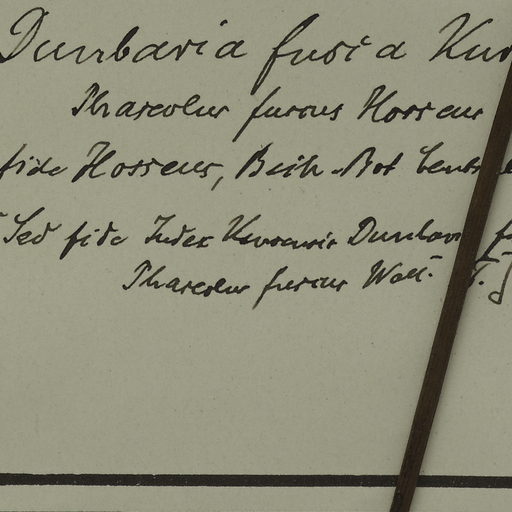 Dunbaria fusca Kur
Phaseolus fuscus Hosseus
fide Hosseus, Beih. Bot Centr
Sed fide Index Kewensis Dunbar f
Phaseolus fuscus Wall. T.]